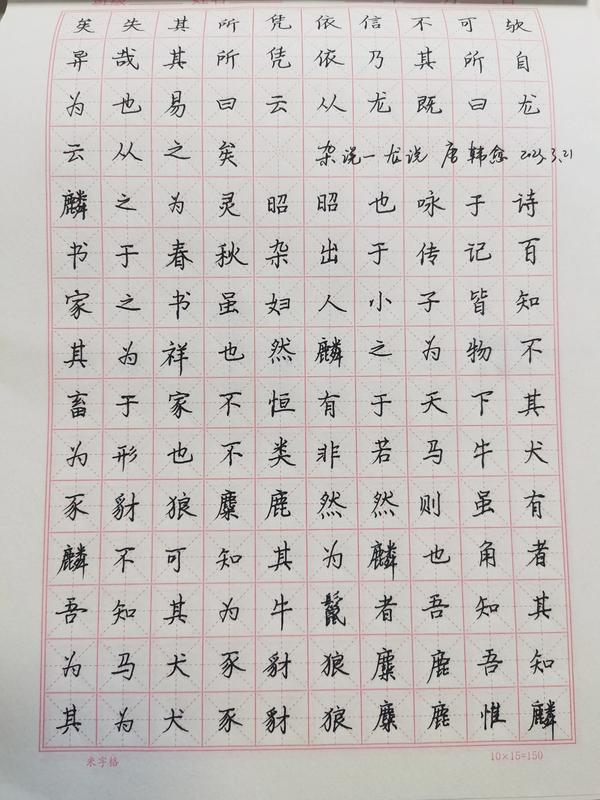 矣失其所凭依信不可欤
异哉其所凭依乃其所自
为也易曰云从龙既曰龙
云从之矣 杂说一 龙说 唐 韩愈 2023.3.21
麟之为灵昭昭也咏于诗
书于春秋杂出于传记百
家之书虽妇人小子皆知
其为祥也然麟之为物不
畜于家不恒有于天下其
为形也不类非若马牛犬
豕豺狼麋鹿然然则虽有
麟不可知其为麟也角者
吾知其为牛鬣者吾知其
为马犬豕豺狼麋鹿吾知
其为犬豕豺狼麋鹿惟麟
米字格 10×15=150